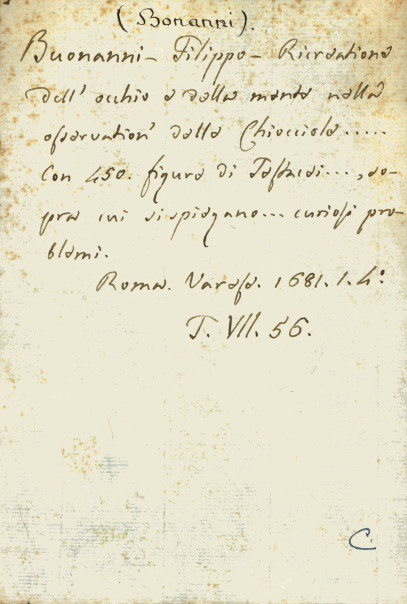 (Bonanni).
Buonanni - Filippo - Ricreatione
dell' occhio e della mente nella
osservation' delle Chiocciole.....
Con 450. figure di Testacei..., so-
pra cui si spiegano... curiosi pro-
blemi.
Roma. Varese. 1681. 1. 4º.
T. VII. 56.
C.